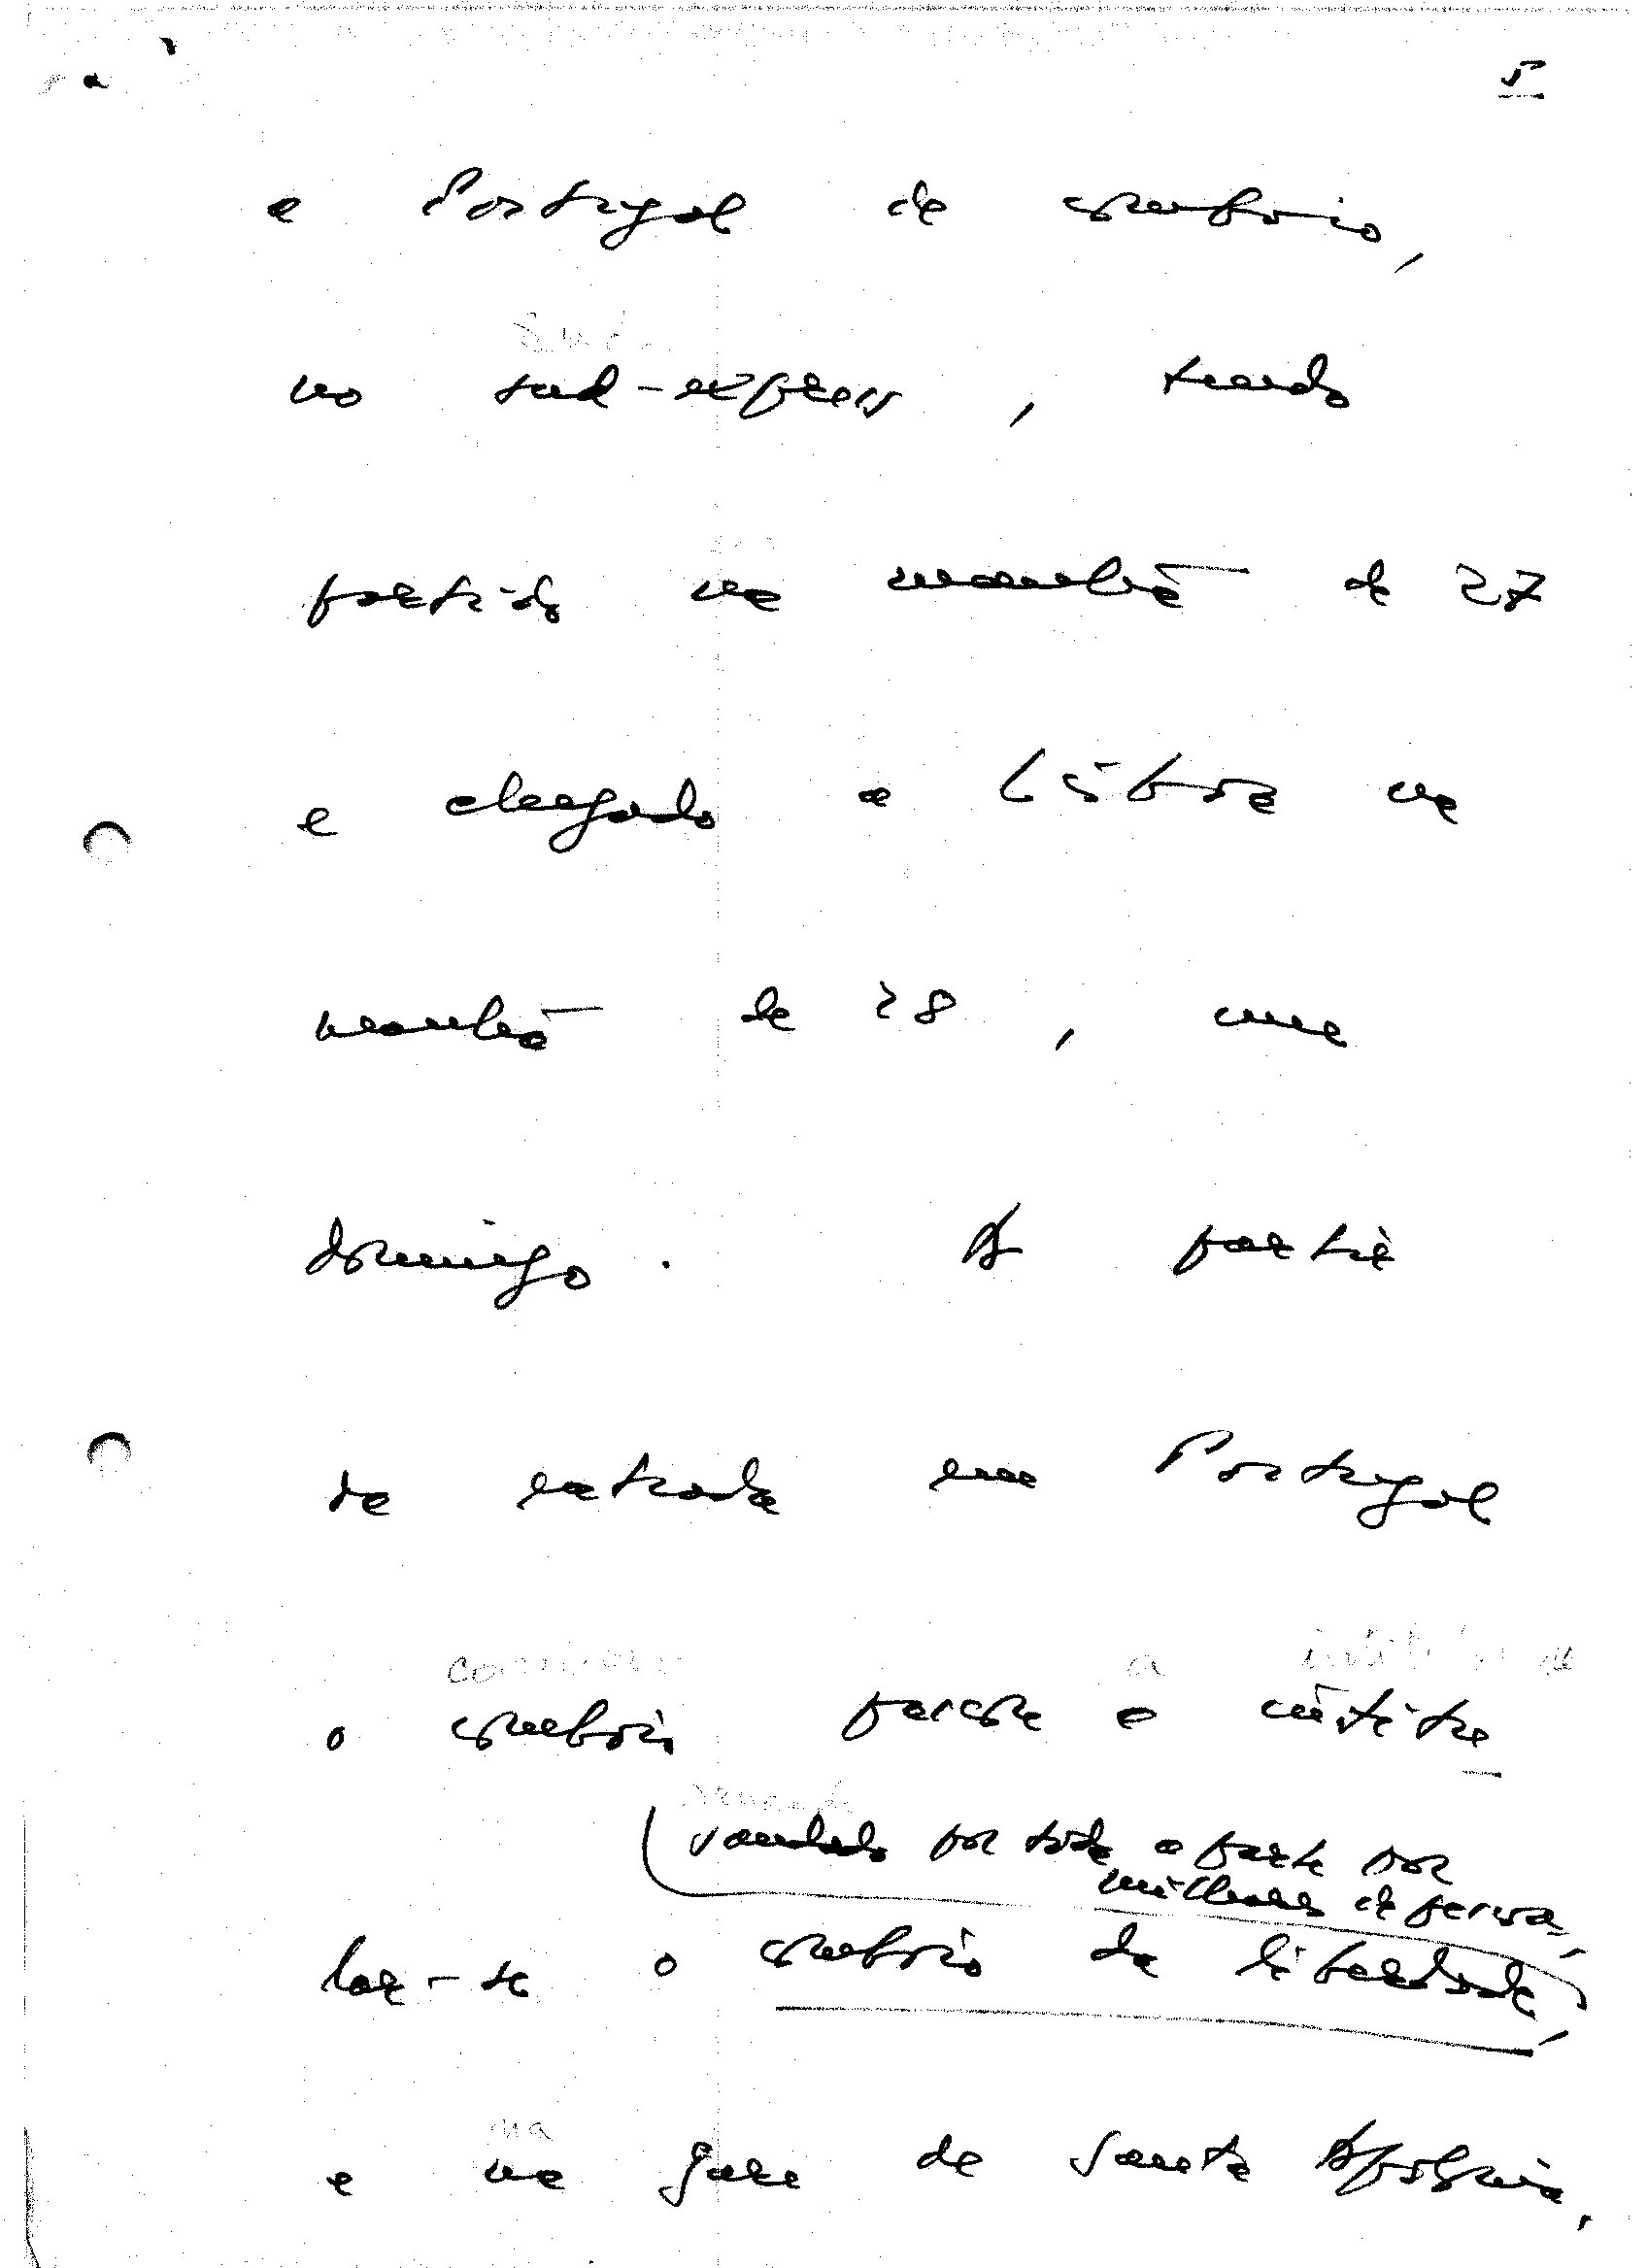 5
a Portugal de comboio,
no sud-express, tendo
partido na manhã de 27
e chegado a Lisboa na
manhã de 28, um
domingo. A partir
da entrada em Portugal
o comboio passou a intitu
saudado por toda a parte por
milhares de pessoas,
lar-se o comboio da liberdade,
e na gare de Santa Apolónia,